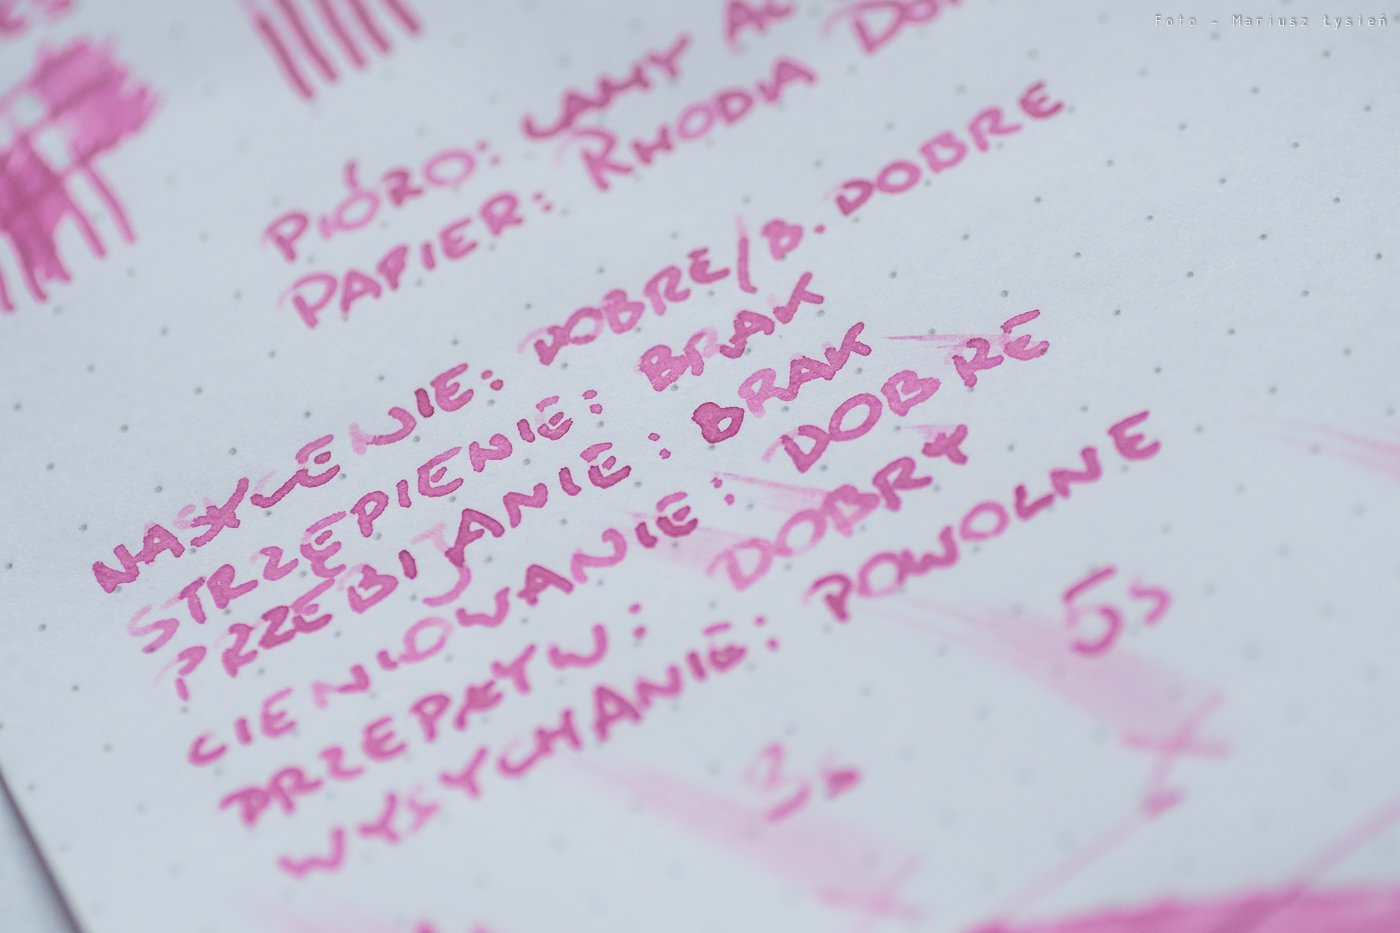 Foto - Mariusz Łysień
PIÓRO: LAMY AL
PAPIER: RHODIA DOT
NASYCENIE: DOBRE/B. DOBRE
STRZĘPIENIE: BRAK
PRZEBIJANIE: BRAK
CIENIOWANIE: DOBRE
PRZEPŁYW: DOBRY
WYSYCHANIE: POWOLNE
5s
3s